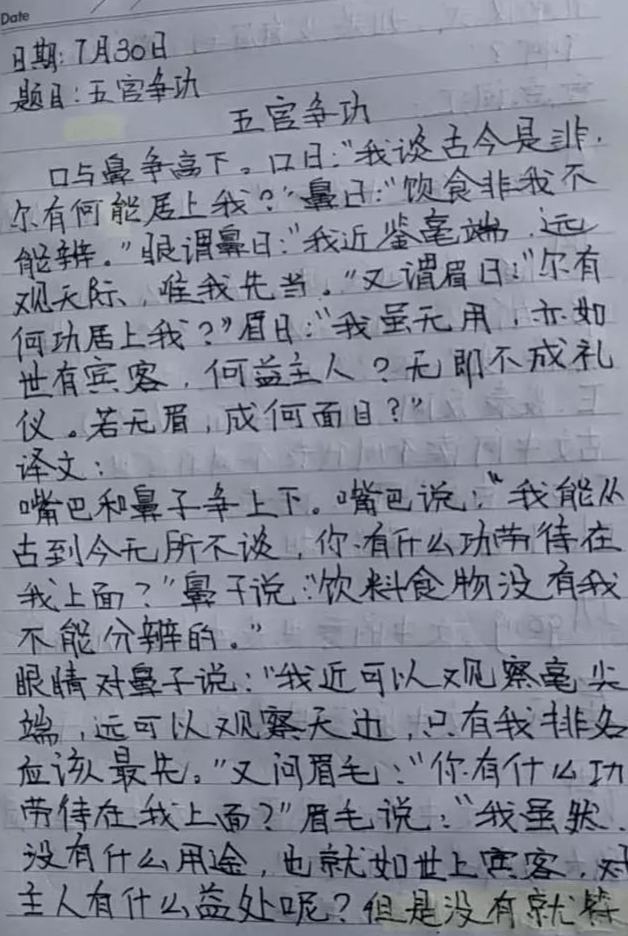 Date
日期:7月30日
题目:五官争功
五官争功
口与鼻争高下。口曰:"我谈古今是非,
尔有何能居上我?"鼻曰:"饮食非我不
能辨。"眼谓鼻曰:"我近鉴毫端,远
观天际,唯我先当。"又谓眉曰:"尔有
何功居上我?"眉曰:"我虽无用,亦如
世有宾客,何益主人?无即不成礼
仪。若无眉,成何面目?"
译文:
嘴巴和鼻子争上下。嘴巴说:"我能从
古到今无所不谈,你有什么功劳待在
我上面?"鼻子说:"饮料食物没有我
不能分辨的。"
眼睛对鼻子说:"我近可以观察毫尖
端,远可以观察天边,只有我排名
应该最先。"又问眉毛:"你有什么功
劳待在我上面?"眉毛说:"我虽然
没有什么用途,也就如世上宾客,对
主人有什么益处呢?但是没有就